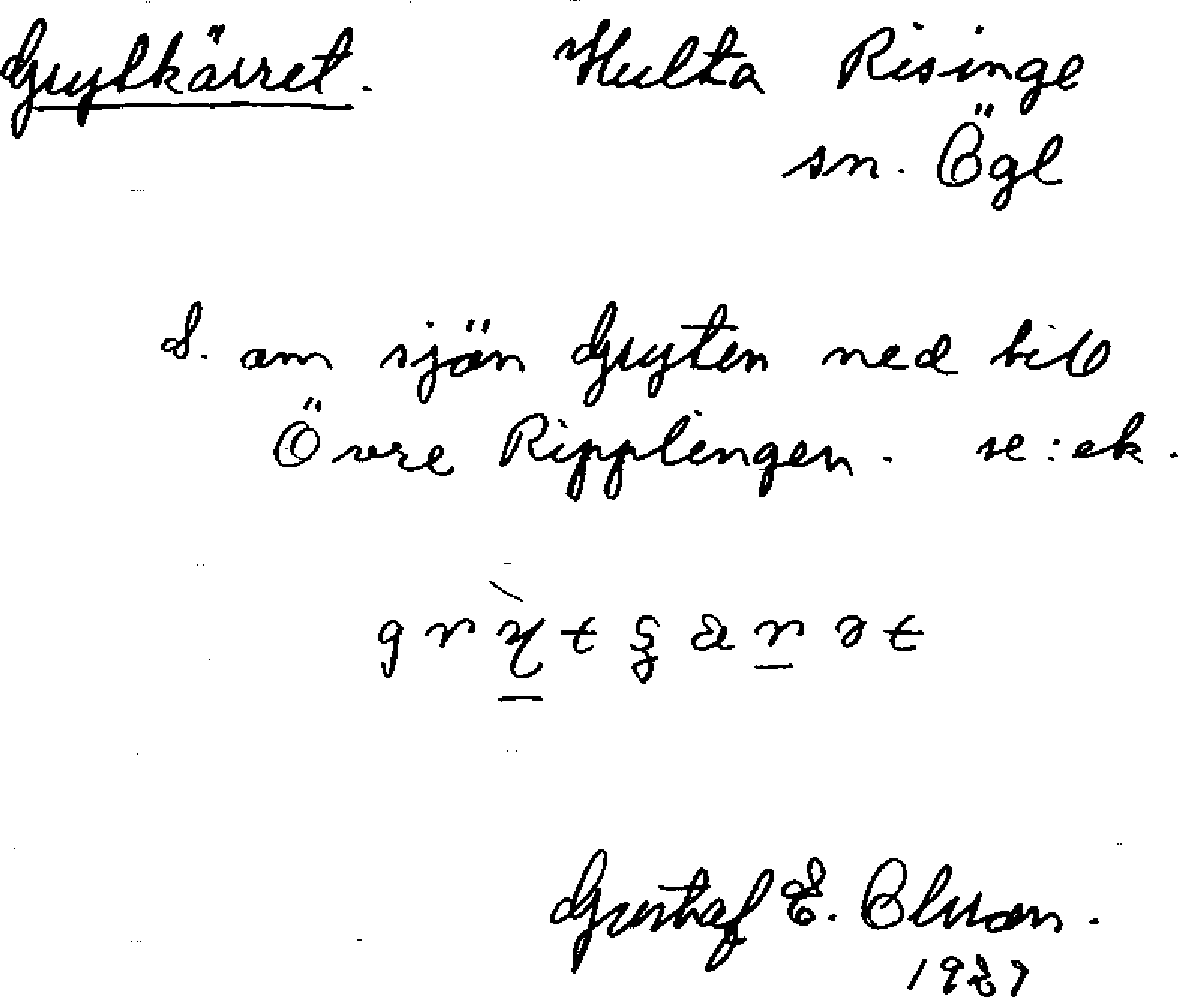 Grytkärret. Hulta Risinge
sn. Ögl
S. om sjön Gryten ned till
Övre Ripplengen. se: ek.
Gustaf E. Olsson.
1927